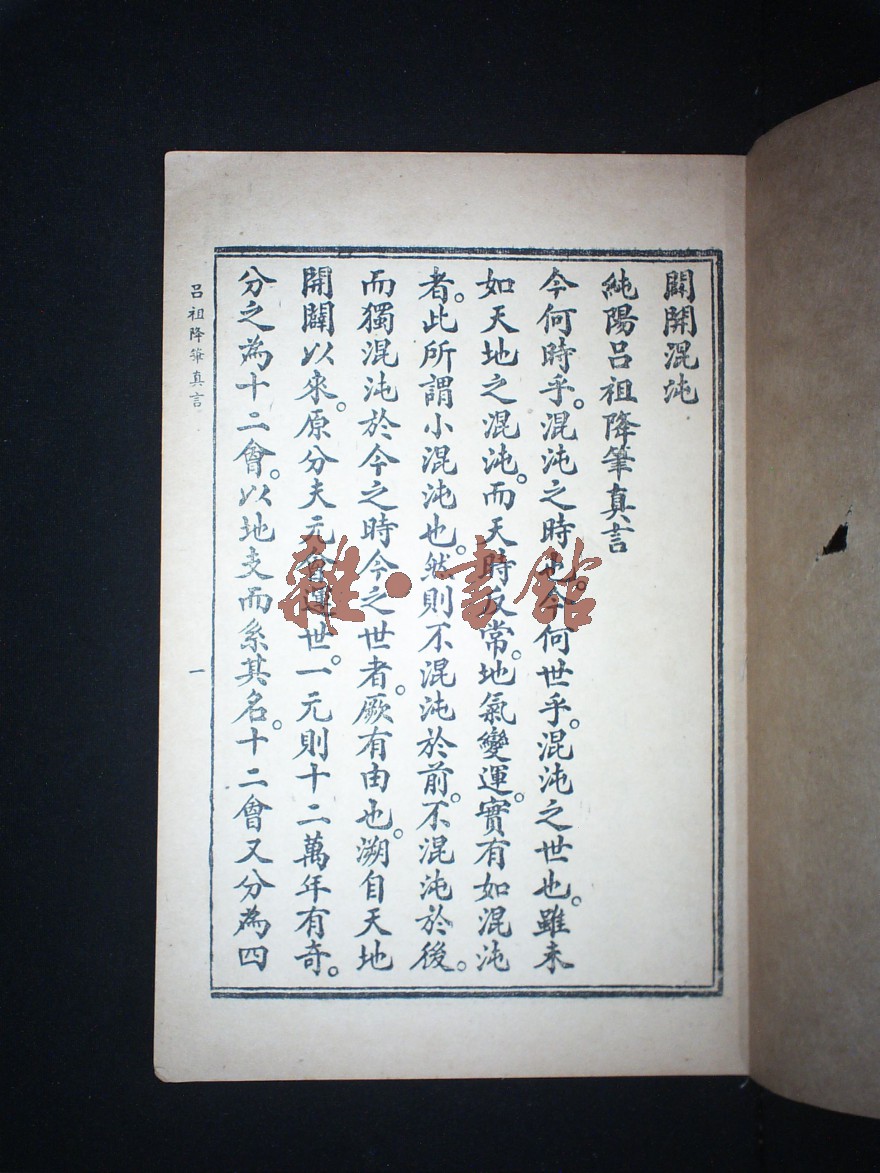 闢開混沌
純陽呂祖降筆真言
今何時乎。混沌之時也。今何世乎。混沌之世也。雖未
如天地之混沌。而天時反常。地氣變運。實有如混沌
者。此所謂小混沌也。然則不混沌於前。不混沌於後。
而獨混沌於今之時今之世者。厥有由也。溯自天地
開闢以來。原分夫元會運世。一元則十二萬年有奇。
分之為十二會。以地支而系其名。十二會又分為四
呂祖降筆真言
一
雜·書館